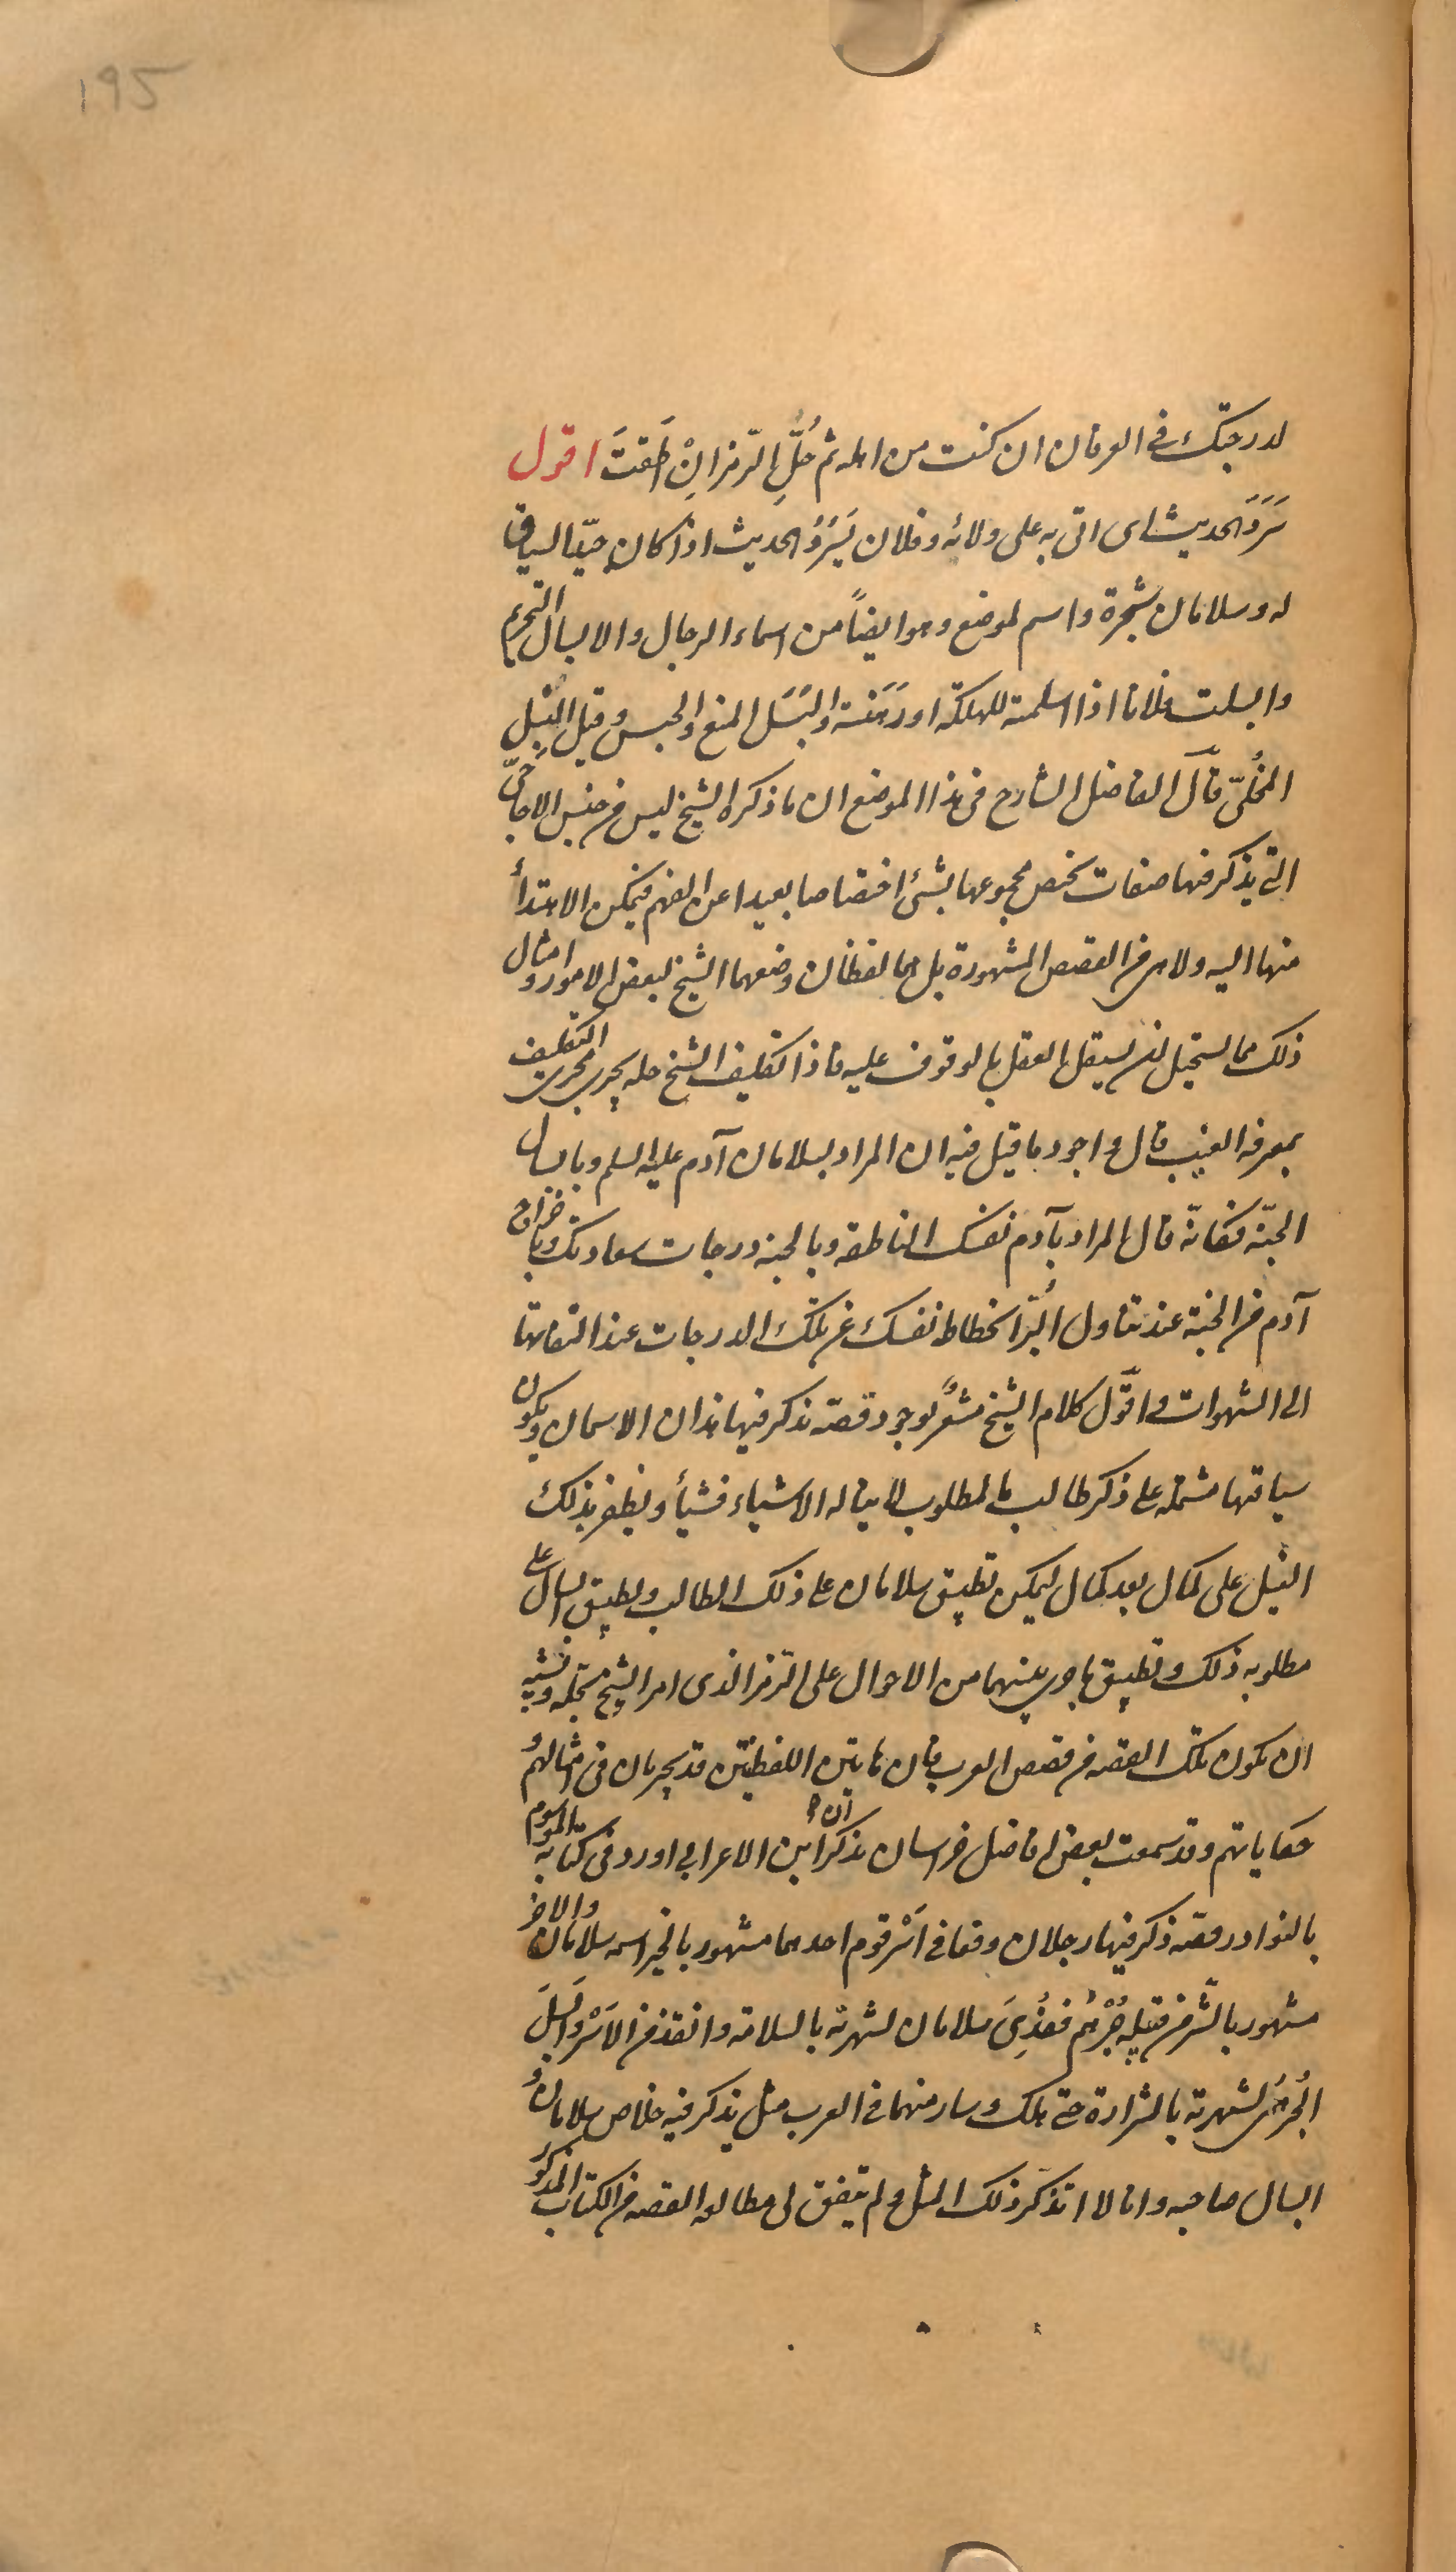 195
لدرجتك فی العرفان ان کنت من اهله ثم حُلَّ الرّمز اِنْ اَطَقتَ اقول
سَرَدَ الحدیث ای اتی به علی ولائه وفلان یَسرُدُ الحدیث اذا کان جیّد السیاق
له وسلامان شجرة واسم لموضع وهو ایضاً من اسماء الرجال والابسال التحریم
وابسلت فلانا اذا اسلمته للهلکة او رَهَنته والبَسَل المنع والحبس وقیل البسل
المُخلّی قال الفاضل الشارح فی هذا الموضع ان ما ذکره الشیخ لیس من جنس الاحاجی
التی یذکر فیها صفات یختص مجموعها بشئ اختصاصا بعیدا عن الفهم فیمکن الاهتداء
منها الیه ولا هی من القصص المشهورة بل هما لفظان وضعهما الشیخ لبعض الامور وامثال
ذلک مما یستحیل ان یستقل العقل بالوقوف علیه فاذا تکلیف الشیخ حله یجری مجری التکلیف
بمعرفة الغیب قال واجود ما قیل فیه ان المراد بسلامان آدم علیه السلم وبابسال
الجنّة فکانّه قال المراد بآدم نفسک الناطقه وبالجنة درجات سعادتک وباخراج
آدم من الجنة عند تناول البُرّ انحطاط نفسک عن تلک الدرجات عند التفاتها
الی الشهوات واقول کلام الشیخ مشعرٌ بوجود قصة یذکر فیها هذان الاسمان ویکون
سیاقتها مشتملة علی ذکر طالب ما لمطلوب لا یناله الا شیاء فشیأ ویظفر بذلک
النیل علی کمال بعد کمال لیمکن تطبیق سلامان علی ذلک الطالب وتطبیق ابسال علی
مطلوبه ذلک وتطبیق ما جری بینهما من الاحوال علی الرمز الذی امر الشیخ بحله ویشبه
ان یکون تلک القصه من قصص العرب فان هاتین اللفظتین قد یجریان فی امثالهم و
حکایاتهم وقد سمعت بعض افاضل خراسان یذکر ان ابن الاعرابی اورد فی کتابه الموسوم
بالنوادر قصّة ذکر فیها رجلان وقعا فی اَسْرِ قوم احدهما مشهور بالخیر اسمه سلامان والآخر
مشهور بالشّر من قبیلة جُرْهُم ففُدِیَ سلامان لشهرته بالسلامة وانقذ من الاَسْر واُبسِلَ
الجُرهمی لشهرته بالشرارة حتی هلک وسار منهما فی العرب مثل یذکر فیه خلاص سلامان و
ابسال صاحبه وانا لا اتذکّر ذلک المثل ولم یتفق لی مطالعه القصه من الکتاب المذکور